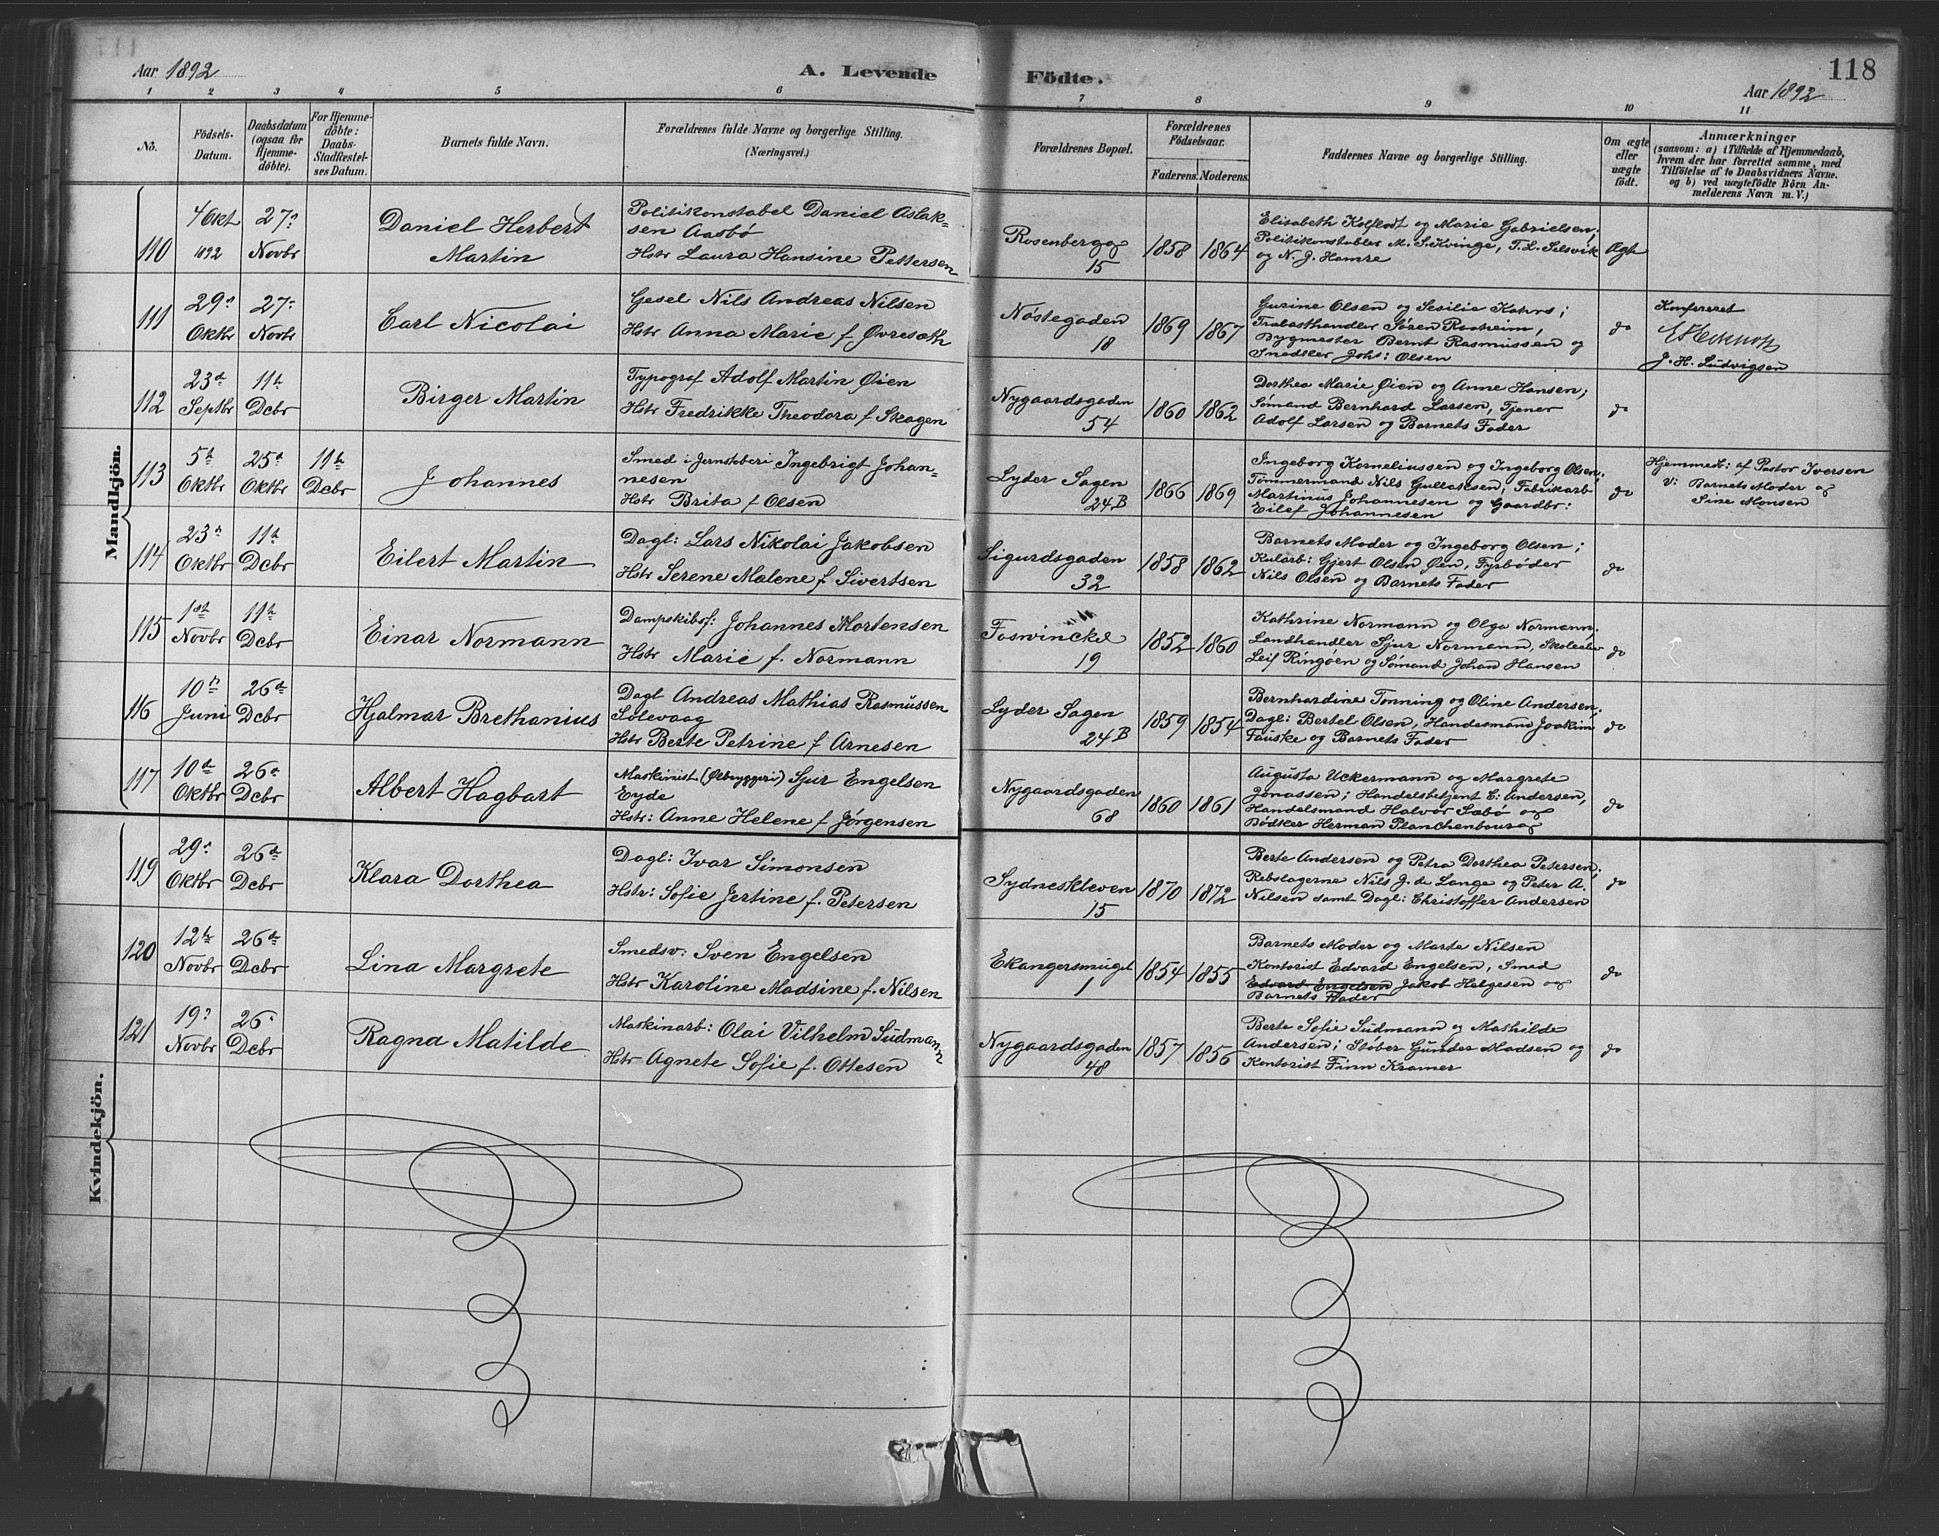 118
Aar 1892
A. Levende Födte.
Aar 1892
1 2 3 4 5 6 7 8 9 10 11
No.
Födsels-
Datum.
Daabsdatum
(ogsaa for
Hjemme-
döbte).
For Hjemme-
döbte:
Daabs-
Stadfæstel-
ses Datum.
Barnets fulde Navn.
Forældrenes fulde Navne og borgerlige Stilling.
(Næringsvei.)
Forældrenes Bopæl.
Forældrenes
Födselsaar.
Faderens. Moderens.
Faddernes Navne og borgerlige Stilling.
Om ægte
eller
uægte
født.
Anmærkninger
(saasom: a) i Tilfælde af Hjemmedaab,
hvem der har forrettet samme, med
Tilföielse af to Daabsvidners Navne.
og b) ved uægtefödte Börn An-
melderens Navn m. V.)
Mandkjön.
110
4 Okt
1892
27
Novbr
Daniel Herbert
Martin
Politikonstabel Daniel Aslak-
sen Aasbø
Hstr Laura Hansine Pettersen
Rosenbergg
15
1858 1864
Elisabeth Kolflodt og Marie Gabrielsen;
Politikonstabler M. S. Kvinge, T. L. Selsvik
og N. J. Hamre
Ægt
111
29
Oktbr
27
Novbr
Carl Nicolai
Gesel Nils Andreas Nilsen
Hstr Anna Marie f Øvresæth
Nøstegaden
18
1869 1867
Gurine Olsen og Sesilie Kahrs;
Trabasthandler Søren Raaheim,
Bygmester Bernt Rasmussen og
Snedker Johs: Olsen
do
Konfereret
J. H. Ludvigsen
112
23d
Septbr
11te
Dcbr
Birger Martin
Typograf Adolf Martin Øien
Hstr Fredrikke Theodora f Skagen
Nygaardsgaden
54
1860 1862
Dorthea Marie Øien og Anne Hansen;
Sømand Bernhard Larsen, Tjener
Adolf Larsen og Barnets Fader
do
113
5te
Oktbr
25d
Oktbr
11te
Dcbr
Johannes
Smed i Jernstøberi Ingebrigt Johan-
nesen
Hstr Brita f Olsen
Lyder Sagen
24B
1866 1869
Ingeborg Korneliussen og Ingeborg Olsen;
Tømmermand Nils Gullaksen, Fabrikarb
Martinus Johannesen og Gaardbr:
Eilef Johannesen
do
Hjemmed: af Pastor Iversen
V: Barnets Moder og
Sine Monsen
114
23
Oktbr
11te
Dcbr
Eilert Martin
Dagl: Lars Nikolai Jakobsen
Hstr Serene Malene f Sivertsen
Sigurdsgaden
32
1858 1862
Barnets Moder og Ingeborg Olsen;
Kularb: Gjert Olsen Øen, Fyrbøder
Nils Olsen og Barnets Fader
do
115
1ste
Novbr
11te
Dcbr
Einar Normann
Dampskibsf: Johannes Mortensen
Hstr Marie f. Normann
Foswinckel
19
1852 1860
Kathrine Normann og Olga Normann;
Landhandler Sjur Normann, Skoleelev
Leif Ringøen og Sømand Johan Hansen
do
116
10
Juni
26d
Dcbr
Hjalmar Brethanius
Dagl Andreas Mathias Rasmussen
Solevaag
Hstr Berte Petrine f Arnesen
Lyder Sagen
24B
1859 1854
Bernhardine Tonning og Oline Andersen;
Dagl: Bertel Olsen, Handesmand Joakim
Fauske og Barnets Fader
do
117
10d
Oktbr
26d
Dcbr
Albert Hagbart
Maskinist (Ølbryggeri) Sjur Engelsen
Eyde
Hstr: Anne Helene f Jørgensen
Nygaardsgaden
68
1860 1861
Augusta Uckermann og Margrete
Jonassen; Handelsbetjent E: Andersen,
Handelsmand Halvor Sæbø og
Bødker Herman Planchenbourg
do
Kvindekjön.
119
29
Oktbr
26d
Dcbr
Klara Dorthea
Dagl: Ivar Simonsen
Hstr: Sofie Jertine f. Petersen
Sydneskleven
15
1870 1872
Berte Andersen og Petra Dorthea Petersen;
Rebslagerne Nils J. de Lange og Peter A.
Nilsen samt Dagl: Christoffer Andersen
do
120
12te
Novbr
26d
Dcbr
Lina Margrete
Smedsv: Sven Engelsen
Hstr Karoline Madsine f. Nilsen
Ekangersmuget
1
1854 1855
Barnets Moder og Marte Nilsen
Kontorist Edvard Engelsen, Smed
Edvard Engelsen Jakob Helgesen og
Barnets Fader
do
121
19
Novbr
26
Dcbr
Ragna Matilde
Maskinarb: Olai Vilhelm Sudmann
Hstr Agnete Sofie f. Ottesen
Nygaardsgaden
48
1857 1856
Berte Sofie Sudmann og Mathilde
Andersen; Støber Gunder Madsen og
Kontorist Finn Kramer
do